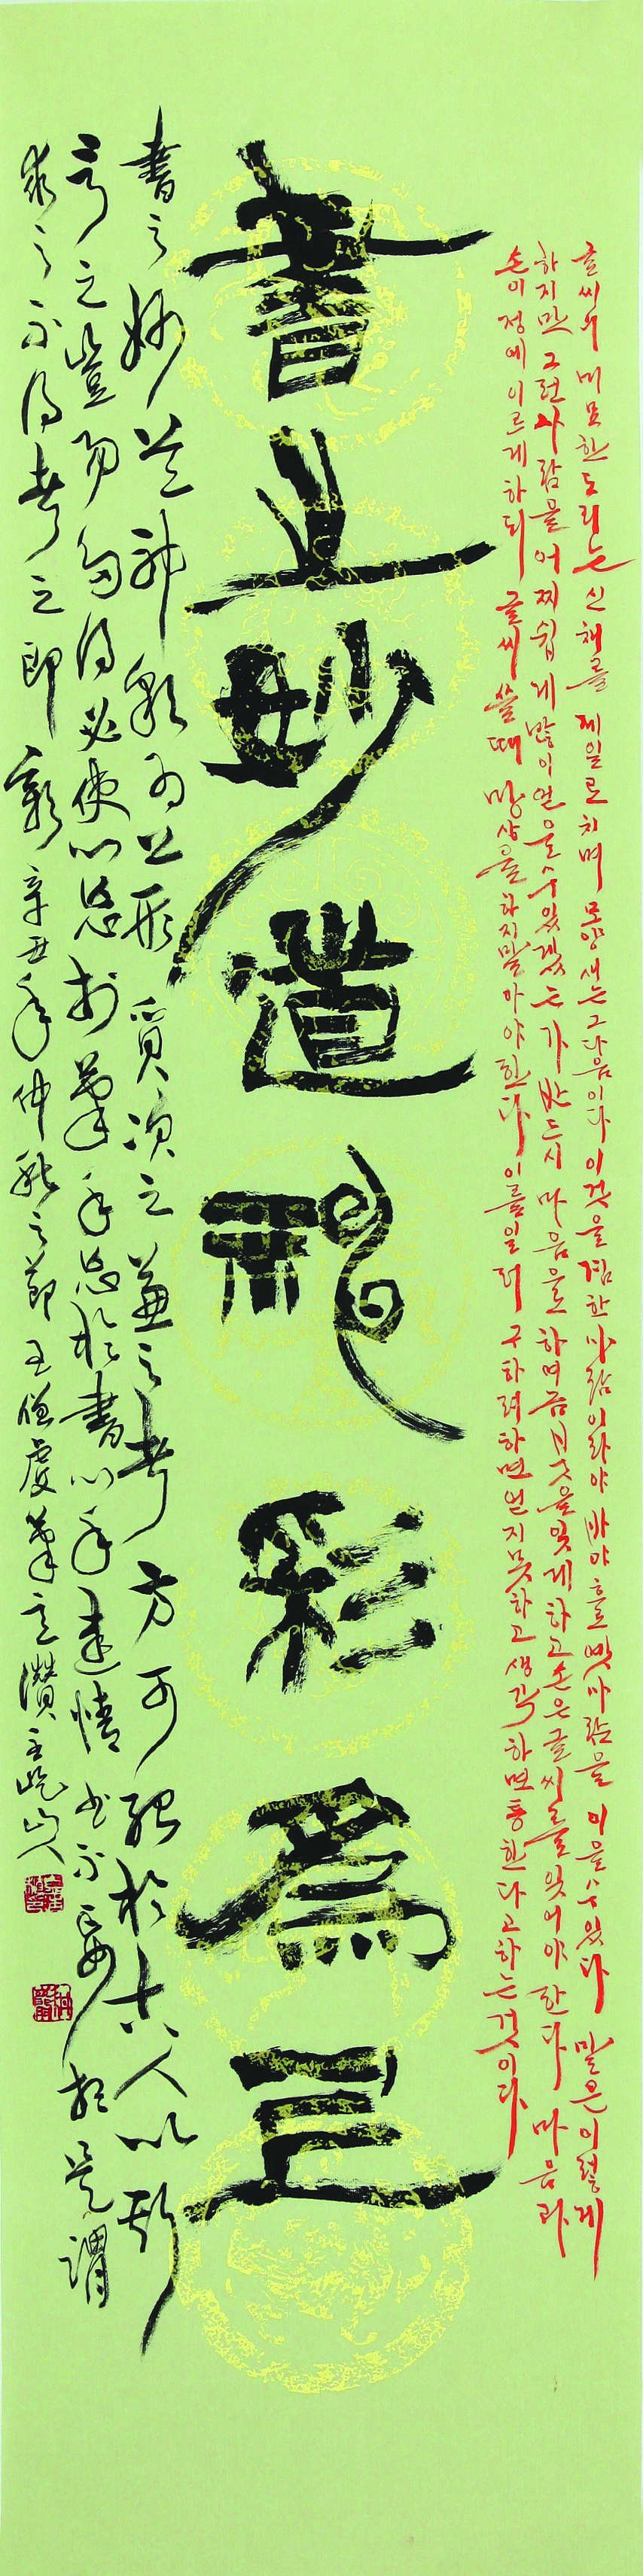 글씨의 매묘한 도리는 신채를 제일로 치며 모양새는 그 다음이다 이것을 겸한 사람이라야 바야흐로 옛사람을 이을 수 있다 말은 이렇게
하지만 그런 사람을 어찌 쉽게 많이 얻을 수 있겠는가 반드시 마음으로 하여금 붓을 잊게 하고 손은 글씨를 잊어야 한다 마음과
손이 정에 이르게 하되 글씨 쓸 때 망상을 하지 말아야 한다 이를 일러 구하려 하면 얻지 못하고 생각하면 통한다고 하는 것이다
書之妙道神彩爲上
書之妙道神彩為上形質次之兼之者方可紹於古人以斯
言之豈易多得必使心忘於筆手忘於書心手達情書不妄想是謂
求之不得考之即彰 辛丑年仲秋之節王僧虔筆意讚 山人